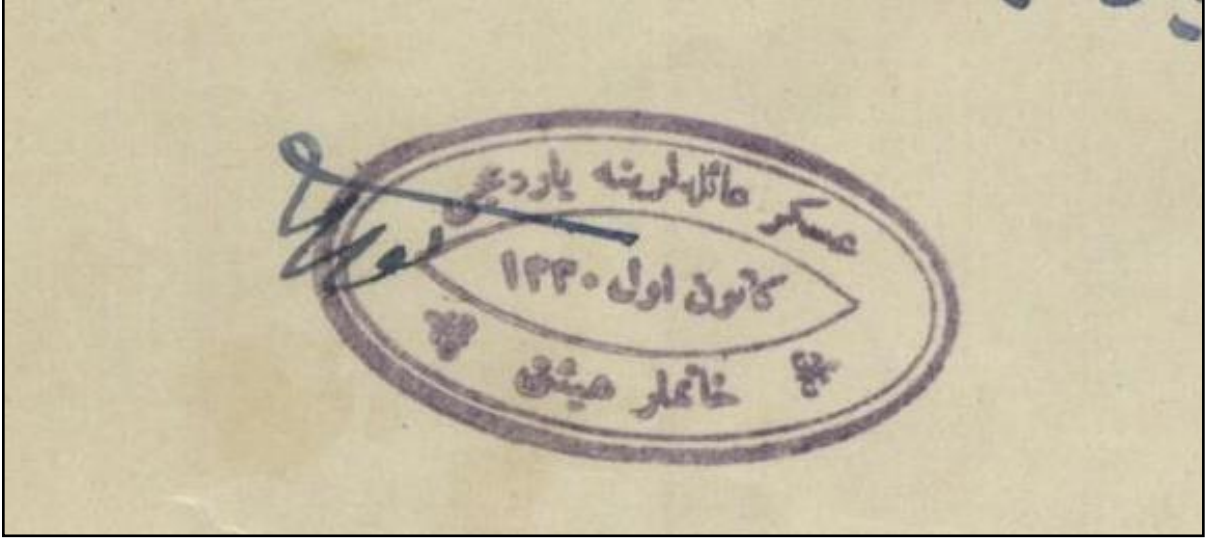 عسكر عائله‌لرینه یاردمجی
كانون اول ۱۳۳۰
خانملر هیئتی